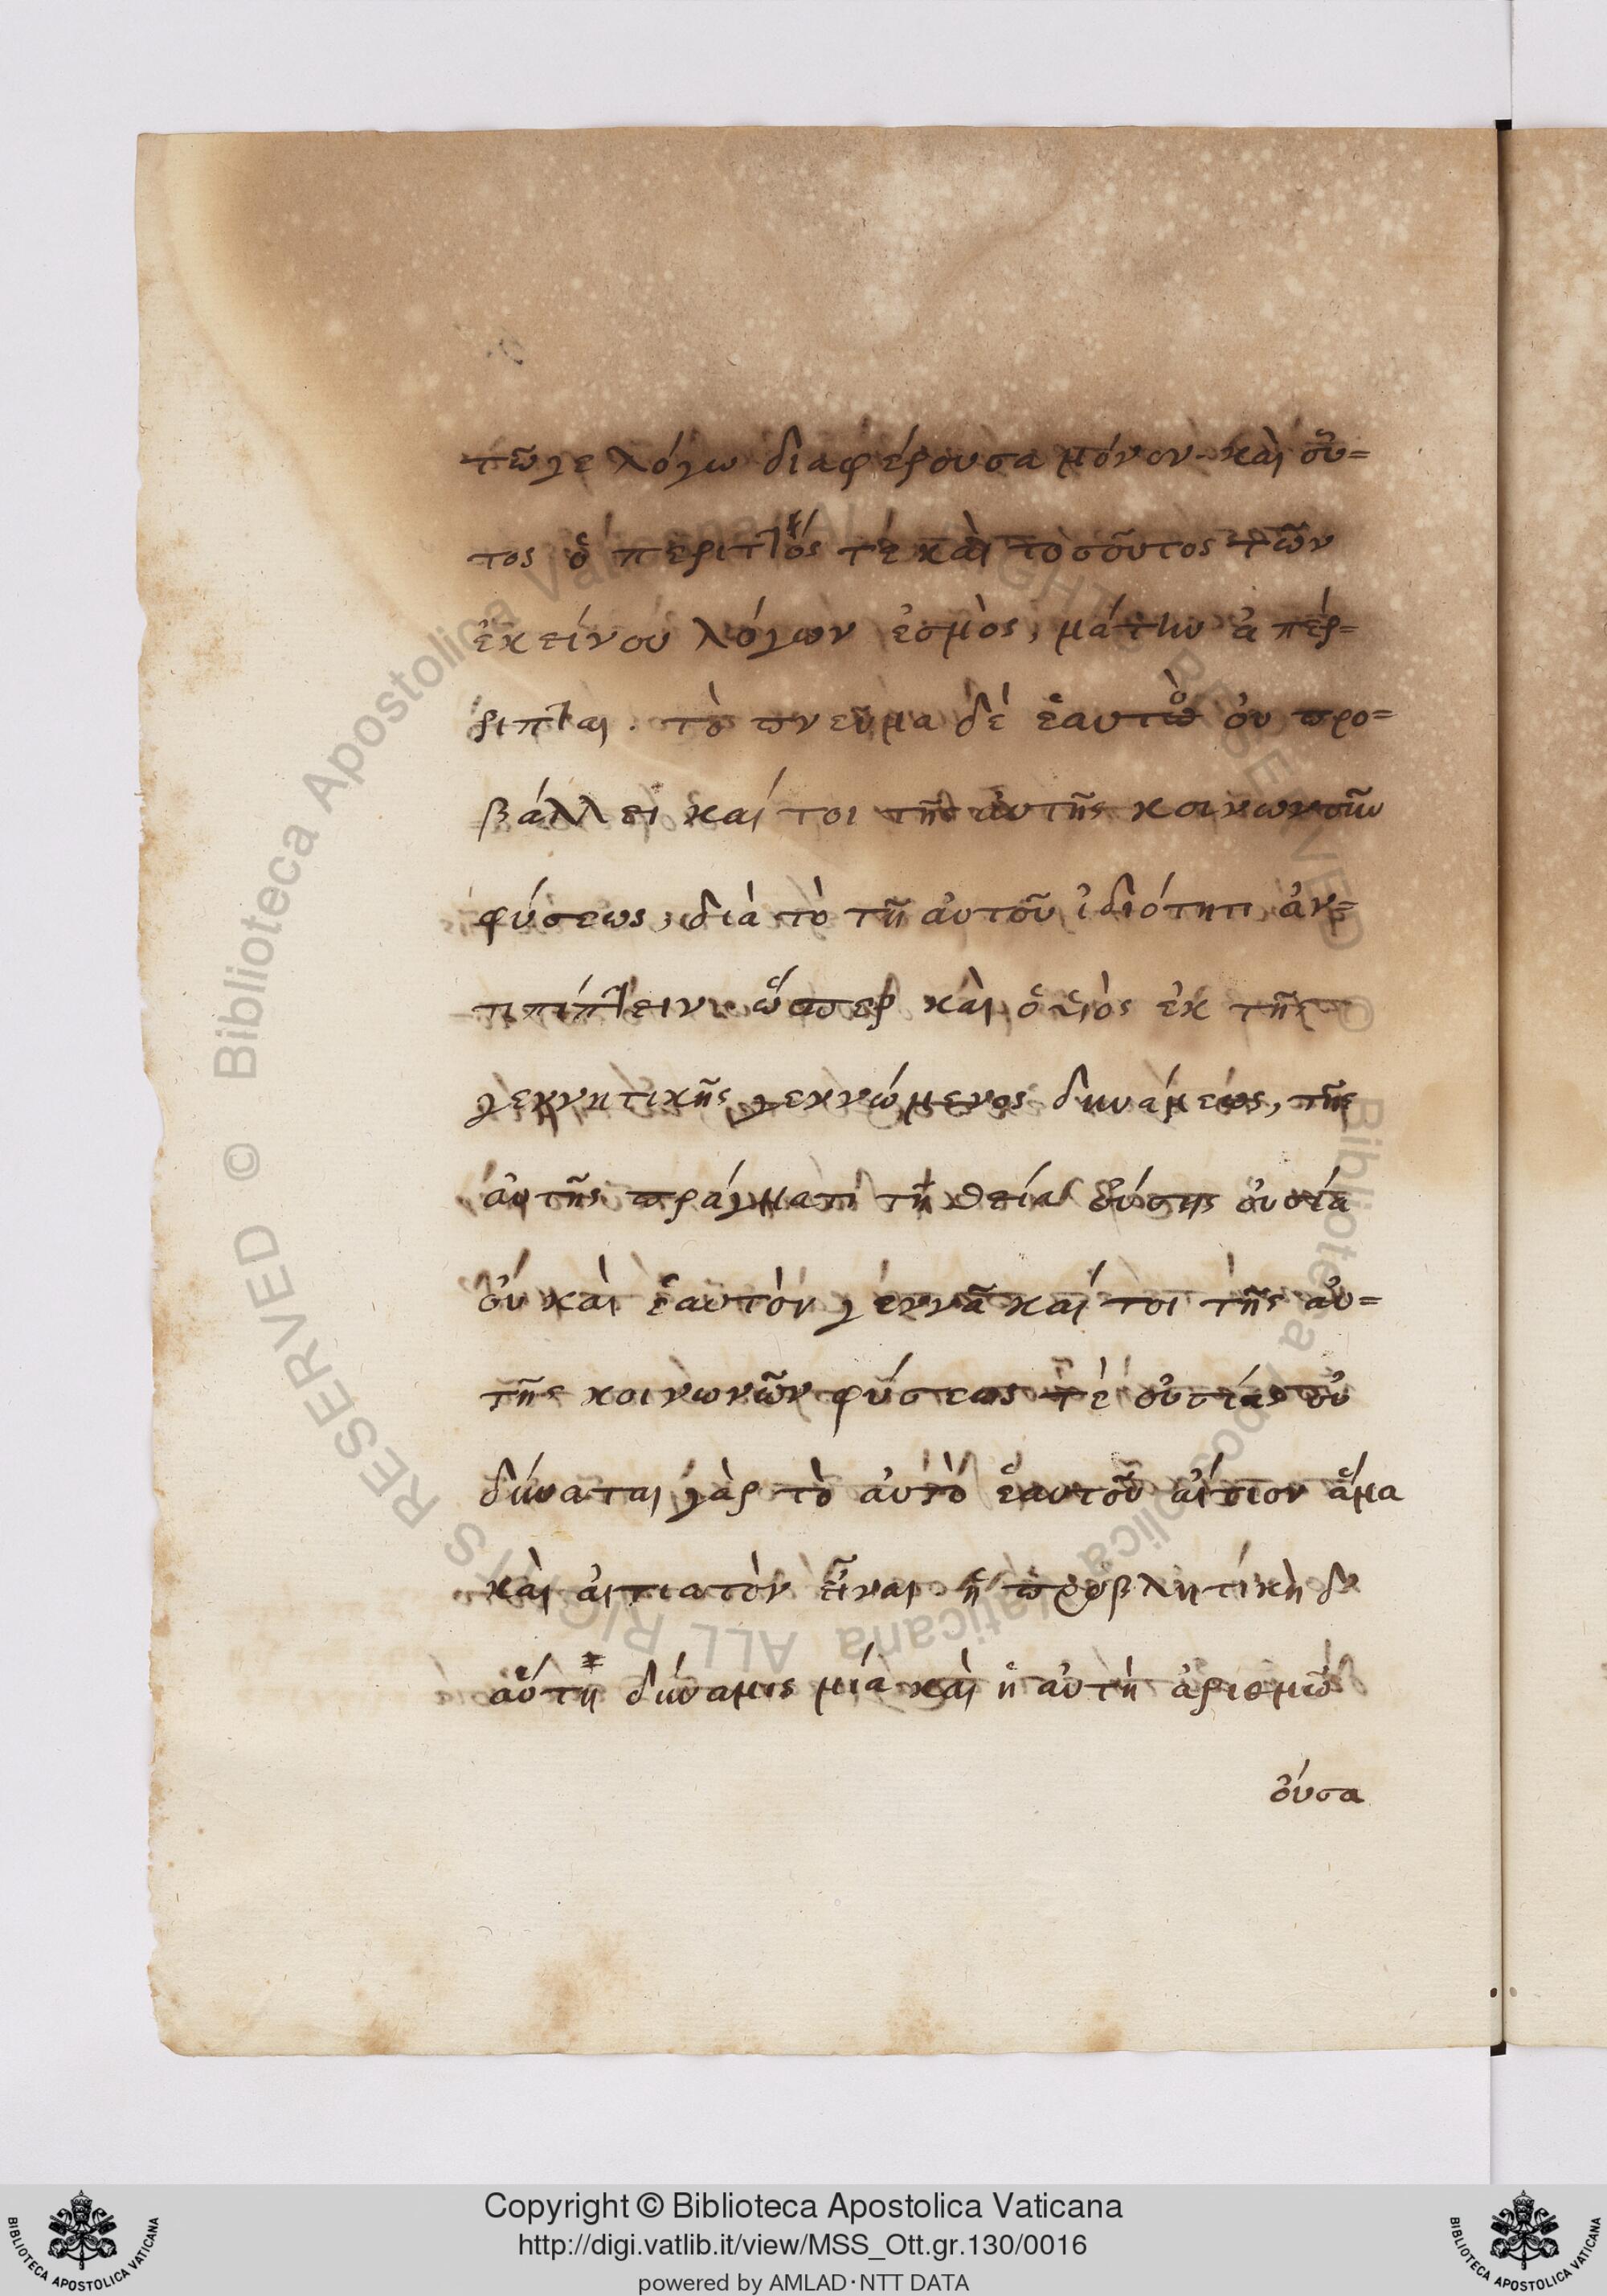 τῶγε λόγω διαφέρουσα μόνον. καὶ οὕ=
τος ὁ περιττός τέ καὶ τοσοῦτος τῶν
ἐκείνου λόγων ἐσμὸς, μάτην ἀπέρ=
ριπται. τὸ πνεῦμα δέ ἑαυτὸ οὐ προ=
βάλλει καί τοι τῆς αὐτῆς κοινωνοῦν
φύσεως, διὰ τὸ τῆ αὐτοῦ ἰδιότητι ἀν=
τιπίπτειν. ὥσπερ καὶ ὁ υἱὸς ἐκ τῆς
γεννητικῆς γεννώμενος δυνάμεως, τῆς
αὐτῆς πράγματι τῆ θεία οὔσης οὐσία
οὐ καὶ ἑαυτὸν γεννᾶ καί τοι τῆς αὐ=
τῆς κοινωνῶν φύσεως τέ οὐσίας οὐ
δύναται γὰρ τὸ αὐτὸ ἑαυτοῦ αἴτιον ἅμα
καὶ αἰτιατὸν εἶναι. ἡ προβλητικὴ δὲ
αὕτη δύναμις μία καὶ ἡ αὐτὴ ἀριθμῶ
οὖσα
Copyright © Biblioteca Apostolica Vaticana
http://digi.vatlib.it/view/MSS_Ott.gr.130/0016
powered by AMLAD·NTT DATA
© Biblioteca Apostolica Vaticana ALL RIGHTS RESERVED
© Biblioteca Apostolica Vaticana ALL RIGHTS RESERVED
BIBLIOTECA APOSTOLICA VATICANA
BIBLIOTECA APOSTOLICA VATICANA